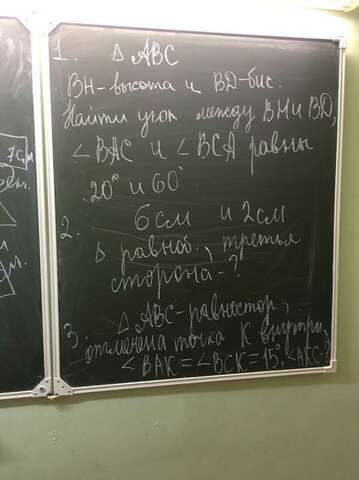 1. △ ABC
BH-высота и BD-бис.
Найти угол между BH и BD,
∠BAC и ∠BCA равны
20° и 60°
2. 6 см и 2 см
△ равноб., третья
сторона-?
3. △ABC-равностор,
отмечена точка K внутри,
∠BAK=∠BCK=15°. ∠AKC-?